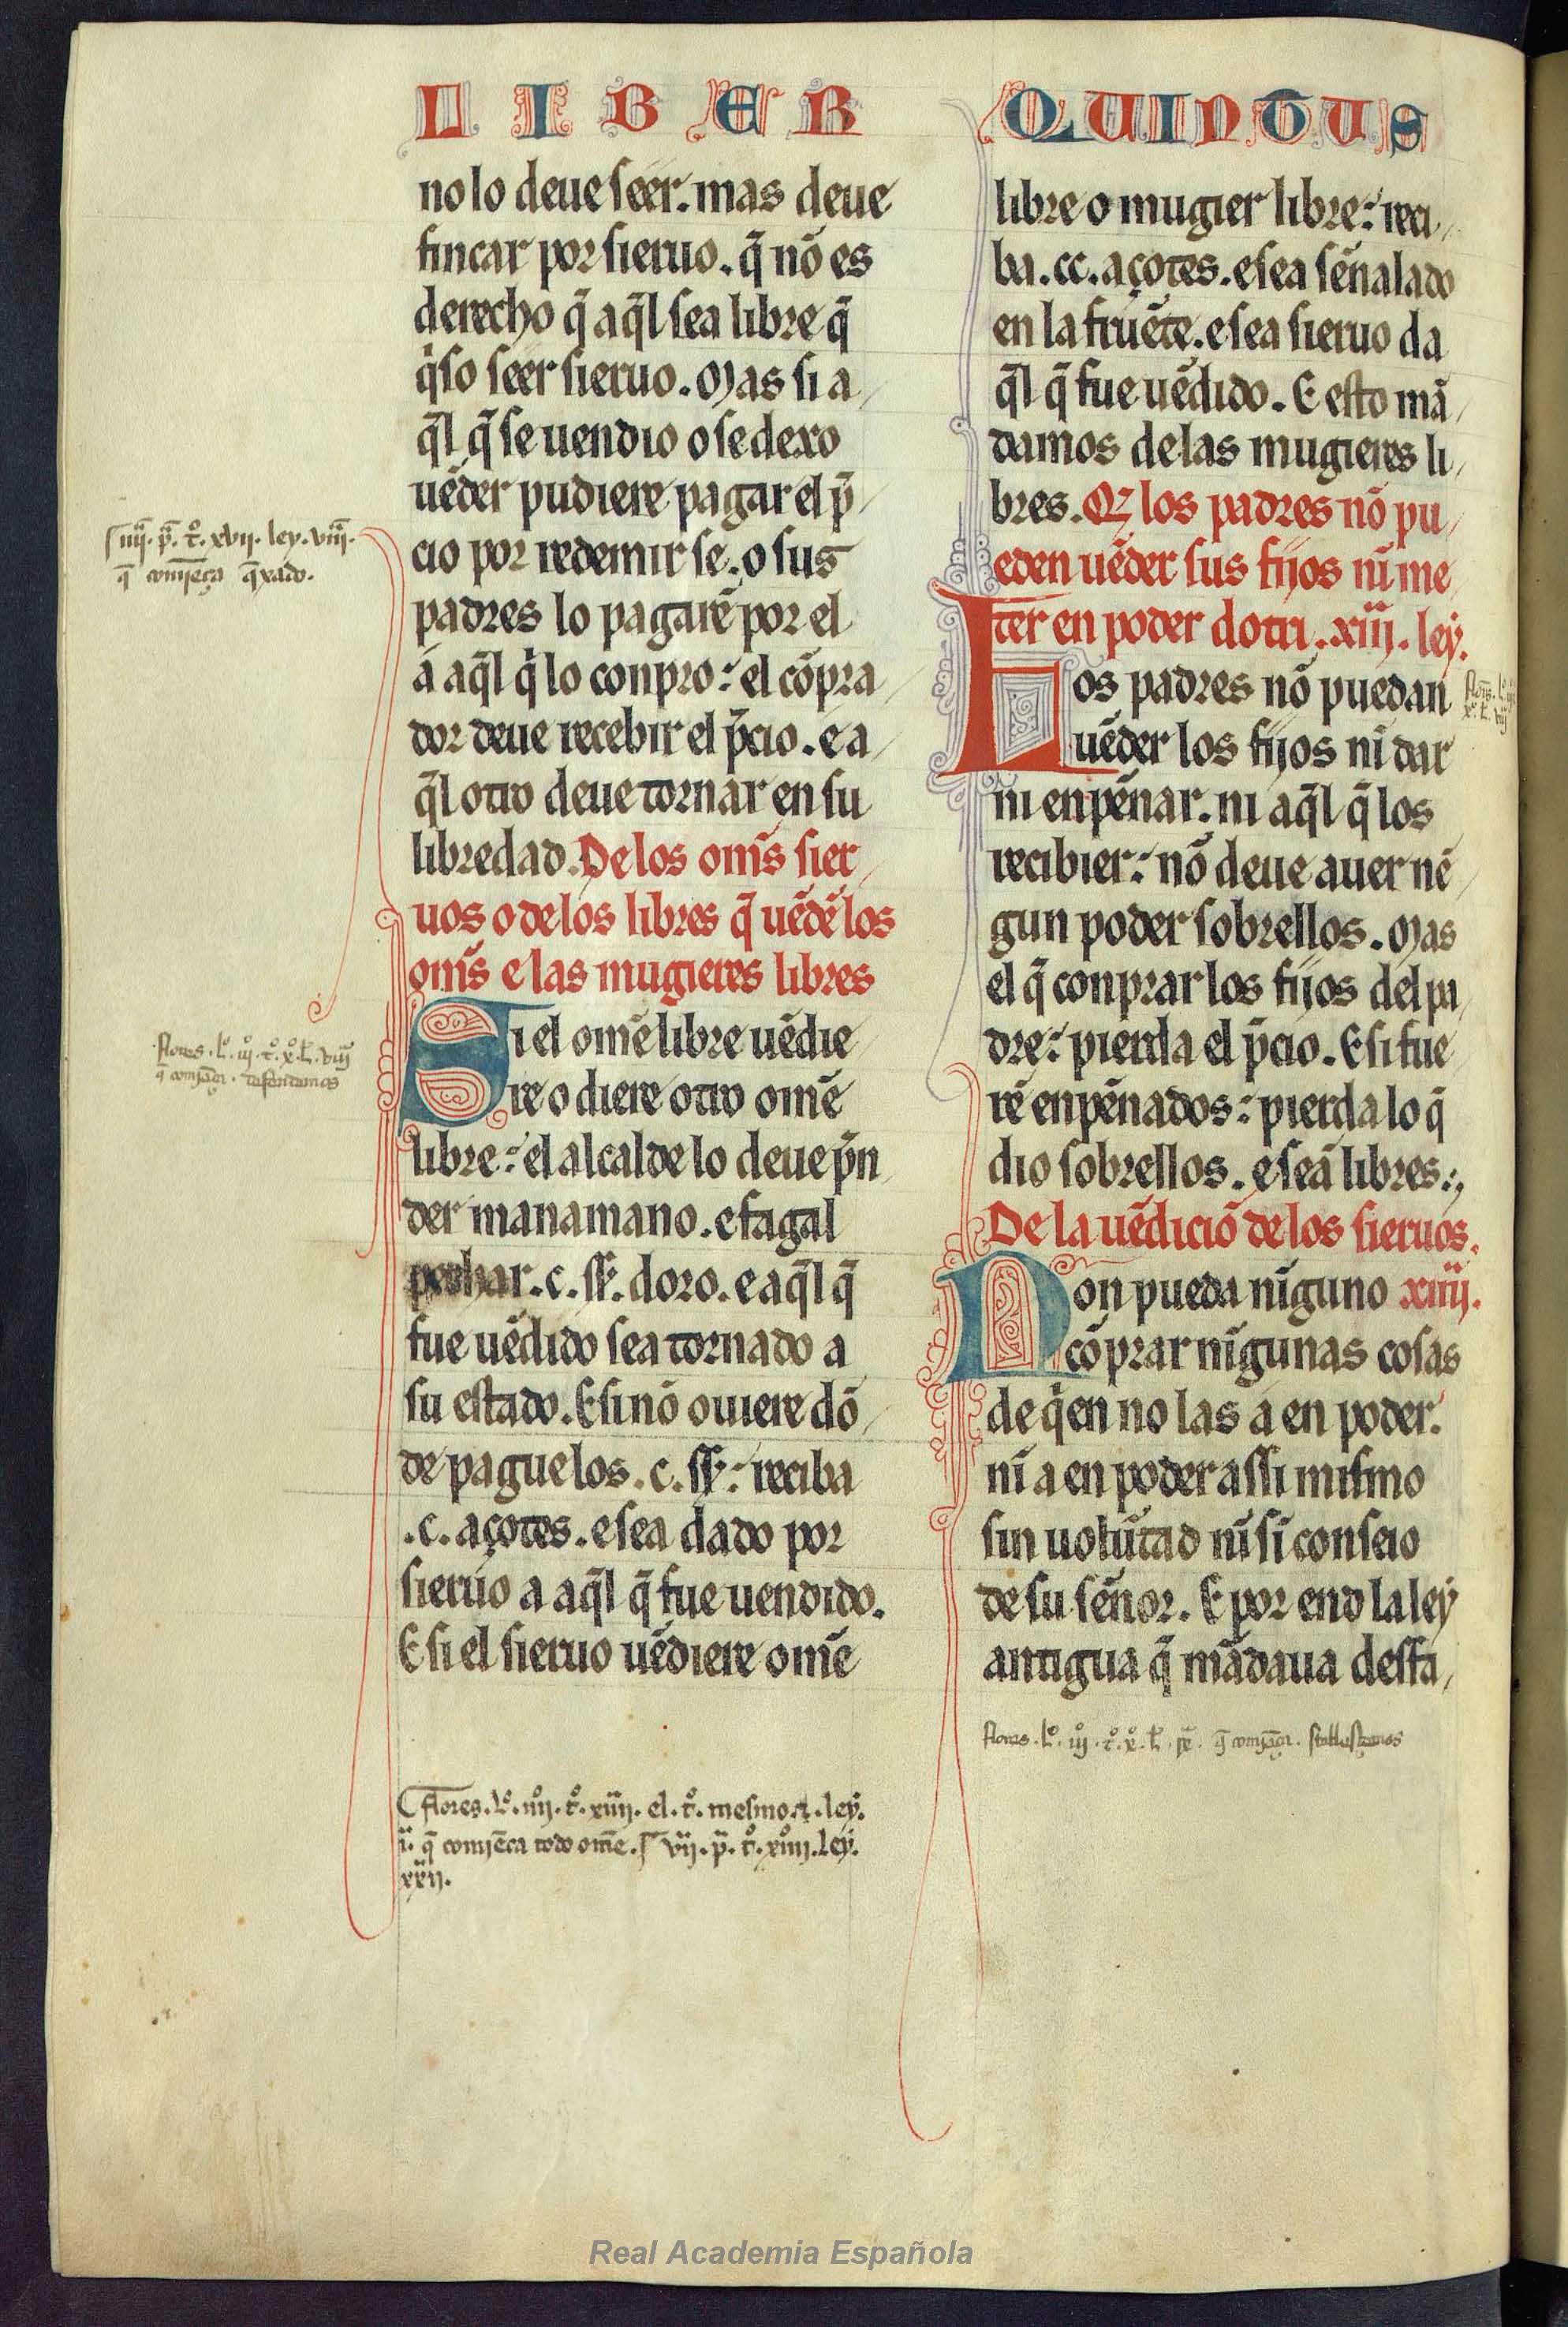 LIBER QUINTUS
no lo deue seer. mas deue
fincar por sieruo. q̃ nõ es
derecho q̃ aq̃l sea libre q̃
q̾so seer sieruo. Mas si a
q̃l q̃ se uendio o se dexo
uẽder pudiere pagar el p̃
cio por redemir se. o sus
padres lo pagarẽ por el
á aq̃l q̾ lo conpro: el cõpra
dor deue recebir el p̃cio. e a
q̃l otro deue tornar en su
libredad. De los om̃s sier
uos o de los libres q̃ uẽdẽ los
om̃s e las mugieres libres
Si el omẽ libre uẽdie
re o diere otro omẽ
libre: el alcalde lo deue p̃n
der manamano. e fagal
pechar .c. ss̃. doro. e aq̃l q̃
fue uẽdido sea tornado a
su estado. E si nõ ouiere dõ
de pague los .c. ss̃: reciba
.c. açotes. e sea dado por
sieruo a aq̃l q̃ fue uendido.
E si el sieruo uẽdiere omẽ
libre o mugier libre: reci
ba .cc. açotes. e sea sẽnalado
en la fruẽte. e sea sieruo da
q̃l q̃ fue uẽdido. E esto mã
damos de las mugieres li
bres. Q̃ los padres nõ pu
eden uẽder sus fijos nĩ me
ter en poder dotri. xiij. ley.
Los padres nõ puedan
uẽder los fijos nĩ dar
ni enpẽnar. ni aq̃l q̃ los
recibier: nõ deue auer nẽ
gun poder sobrellos. Mas
el q̃ conprar los fijos del pa
dre: pierda el p̃cio. E si fue
rẽ enpẽnados: pierda lo q̃
dio sobrellos. e seã libres.
De la uẽdiciõ de los sieruos.
Non pueda nĩguno xiiij.
cõprar nĩgunas cosas
de q̾en no las a en poder.
nĩ a en poder assi mismo
sin uolũtad nĩ sĩ conseio
de su sẽnor. E por end la ley
antigua q̃ mãdaua desfa
iiij. p̃. t̊. xvij. ley. viij.
q̃ comjença q̃xado.
flores. l̊. iij. t̊. x̊. l. viij
q̃ comjẽça. defendemos
flores. l̊. iij. t̊. x̊. l. ix. q̃ comjẽça. stablesçemos
flores. l̊. iiij. t̊. xiiij. el. t̊. mesmo. ley.
ij. q̃ comjẽca todo omẽ. vij. p̃. t̊. xiiij. ley.
xxij.
Real Academia Española